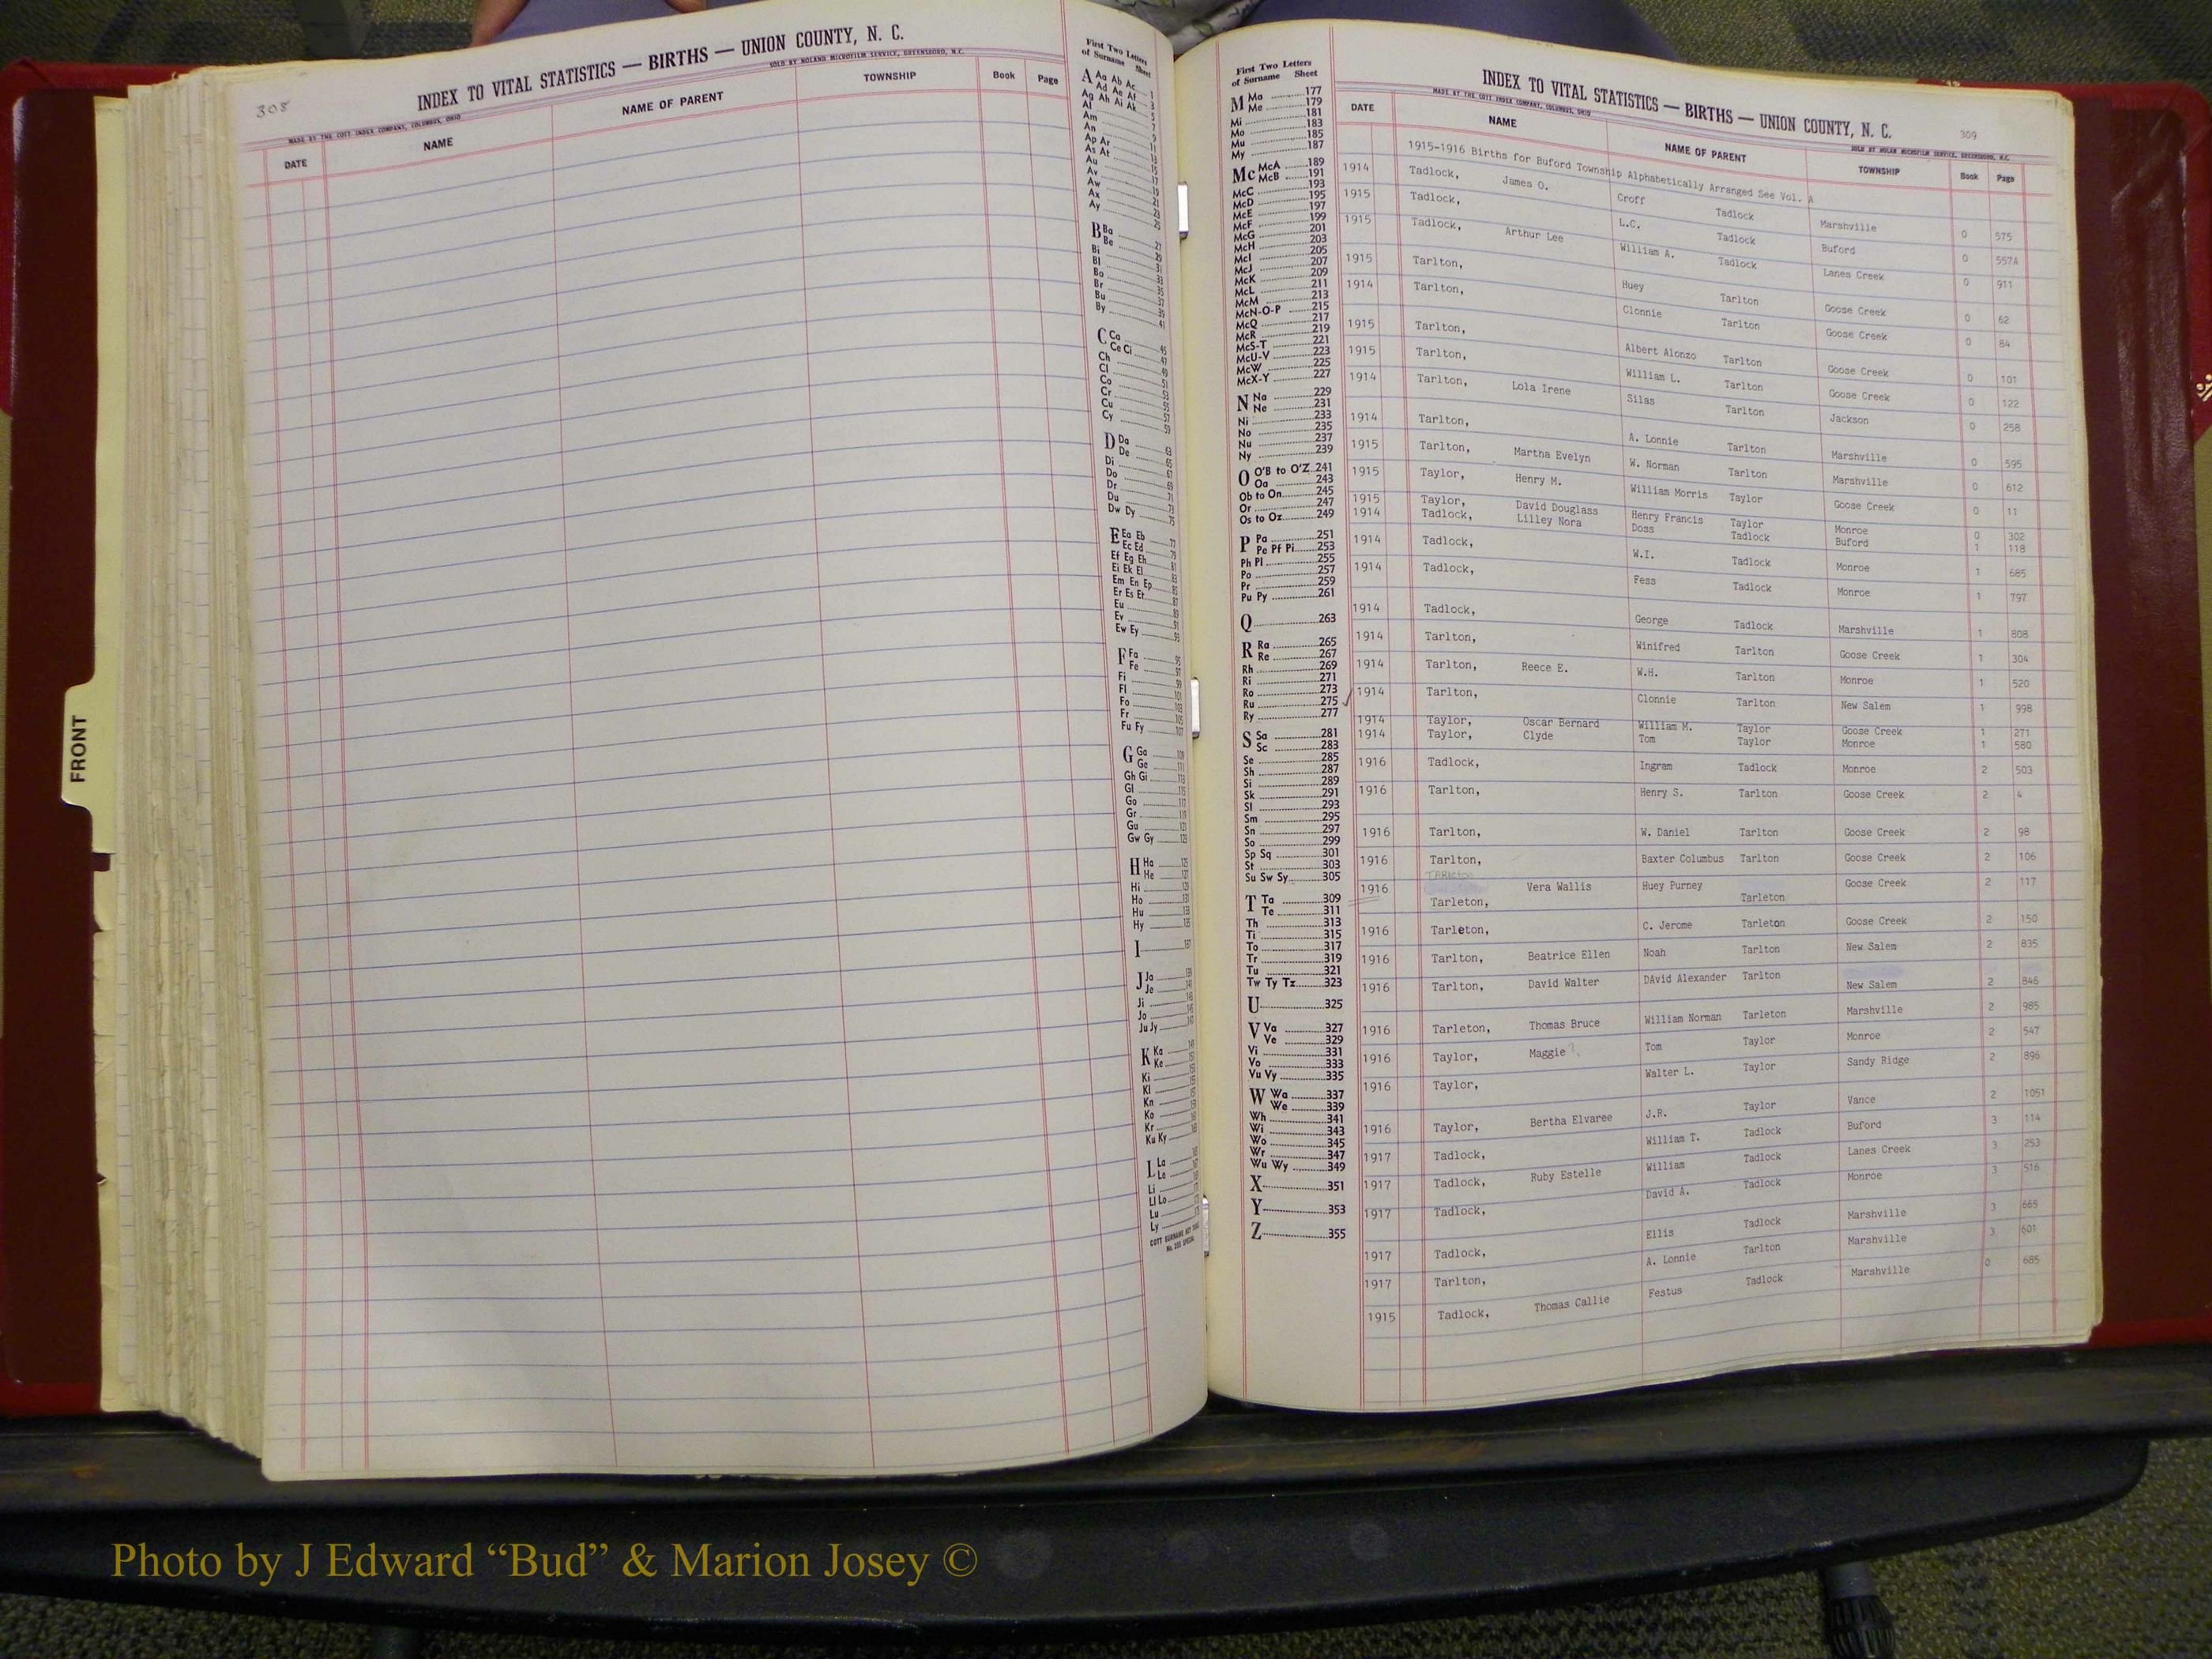 308
INDEX TO VITAL STATISTICS — BIRTHS — UNION COUNTY, N. C.
MADE BY THE COTT INDEX COMPANY, COLUMBUS, OHIO
SOLD BY NOLAND MICROFILM SERVICE, GREENSBORO, N.C.
DATE NAME NAME OF PARENT TOWNSHIP Book Page
First Two Letters
of Surname Sheet
A Aa Ab Ac 1
Ad Ae Af 3
Ag Ah Ai Ak 5
Al 7
Am 9
An 11
Ap Ar 13
As At 15
Au 17
Av 19
Aw 21
Ax 23
Ay 25
B Ba 27
Be 29
Bi 31
Bl 33
Bo 35
Br 37
Bu 39
By 41
C Ca 45
Ce Ci 47
Ch 49
Cl 51
Co 53
Cr 55
Cu 57
Cy 59
D Da 63
De 65
Di 67
Do 69
Dr 71
Du 73
Dw Dy 75
E Ea Eb 77
Ec Ed 79
Ef Eg Eh 81
Ei Ek El 83
Em En Ep 85
Er Es Et 87
Eu 89
Ev 91
Ew Ey 93
F Fa 95
Fe 97
Fi 99
Fl 101
Fo 103
Fr 105
Fu Fy 107
G Ga 109
Ge 111
Gh Gi 113
Gl 115
Go 117
Gr 119
Gu 121
Gw Gy 123
H Ha 125
He 127
Hi 129
Ho 131
Hu 133
Hy 135
I 137
J Ja 139
Je 141
Ji 143
Jo 145
Ju Jy 147
K Ka 149
Ke
Ki
Kl
Kn
Ko
Kr
Ku Ky
L La
Le
Li
Ll Lo
Lu
Ly
FRONT
First Two Letters
of Surname Sheet
M Ma 177
Me 179
Mi 181
Mo 183
Mu 185
My 187
Mc McA 189
McB 191
McC 193
McD 195
McE 197
McF 199
McG 201
McH 203
McI 205
McJ 207
McK 209
McL 211
McM 213
McN-O-P 215
McQ 217
McR 219
McS-T 221
McU-V 223
McW 225
McX-Y 227
N Na 229
Ne 231
Ni 233
No 235
Nu 237
Ny 239
O O'B to O'Z 241
Oa 243
Ob to On 245
Or 247
Os to Oz 249
P Pa 251
Pe Pf Pi 253
Ph Pl 255
Po 257
Pr 259
Pu Py 261
Q 263
R Ra 265
Re 267
Rh 269
Ri 271
Ro 273
Ru 275
Ry 277
S Sa 281
Sc 283
Se 285
Sh 287
Si 289
Sk 291
Sl 293
Sm 295
Sn 297
So 299
Sp Sq 301
St 303
Su Sw Sy 305
T Ta 309
Te 311
Th 313
Ti 315
To 317
Tr 319
Tu 321
Tw Ty Tz 323
U 325
V Va 327
Ve 329
Vi 331
Vo 333
Vu Vy 335
W Wa 337
We 339
Wh 341
Wi 343
Wo 345
Wr 347
Wu Wy 349
X 351
Y 353
Z 355
INDEX TO VITAL STATISTICS — BIRTHS — UNION COUNTY, N. C.
309
MADE BY THE COTT INDEX COMPANY, COLUMBUS, OHIO
SOLD BY NOLAN MICROFILM SERVICE, GREENSBORO, N.C.
DATE NAME NAME OF PARENT TOWNSHIP Book Page
1915-1916 Births for Buford Township Alphabetically Arranged See Vol. A
1914 Tadlock, James O. Croff Tadlock Marshville 0 575
1915 Tadlock, L.C. Tadlock Buford 0 557A
1915 Tadlock, Arthur Lee William A. Tadlock Lanes Creek 0 911
1915 Tarlton, Huey Tarlton Goose Creek 0 62
1914 Tarlton, Clonnie Tarlton Goose Creek 0 84
1915 Tarlton, Albert Alonzo Tarlton Goose Creek 0 101
1915 Tarlton, William L. Tarlton Goose Creek 0 122
1914 Tarlton, Lola Irene Silas Tarlton Jackson 0 258
1914 Tarlton, A. Lonnie Tarlton Marshville 0 595
1915 Tarlton, Martha Evelyn W. Norman Tarlton Marshville 0 612
1915 Taylor, Henry M. William Morris Taylor Goose Creek 0 11
1915 Taylor, David Douglass Henry Francis Taylor Monroe 0 302
1914 Tadlock, Lilley Nora Doss Tadlock Buford 1 118
1914 Tadlock, W.I. Tadlock Monroe 1 685
1914 Tadlock, Fess Tadlock Monroe 1 797
1914 Tadlock, George Tadlock Marshville 1 808
1914 Tarlton, Winifred Tarlton Goose Creek 1 304
1914 Tarlton, Reece E. W.H. Tarlton Monroe 1 520
1914 Tarlton, Clonnie Tarlton New Salem 1 998
1914 Taylor, Oscar Bernard William M. Taylor Goose Creek 1 271
1914 Taylor, Clyde Tom Taylor Monroe 1 580
1916 Tadlock, Ingram Tadlock Monroe 2 503
1916 Tarlton, Henry S. Tarlton Goose Creek 2 4
1916 Tarlton, W. Daniel Tarlton Goose Creek 2 98
1916 Tarlton, Baxter Columbus Tarlton Goose Creek 2 106
1916 Tarleton, Vera Wallis Huey Purney Tarleton Goose Creek 2 117
1916 Tarleton, C. Jerome Tarleton Goose Creek 2 150
1916 Tarlton, Beatrice Ellen Noah Tarlton New Salem 2 835
1916 Tarlton, David Walter DAvid Alexander Tarlton New Salem 2 846
1916 Tarleton, Thomas Bruce William Norman Tarleton Marshville 2 985
1916 Taylor, Maggie ? Tom Taylor Monroe 2 547
1916 Taylor, Walter L. Taylor Sandy Ridge 2 896
1916 Taylor, Bertha Elvaree J.R. Taylor Vance 2 1051
1917 Tadlock, William T. Tadlock Buford 3 114
1917 Tadlock, Ruby Estelle William Tadlock Lanes Creek 3 253
1917 Tadlock, David A. Tadlock Monroe 3 516
1917 Tadlock, Ellis Tadlock Marshville 3 665
1917 Tarlton, A. Lonnie Tarlton Marshville 3 601
1915 Tadlock, Thomas Callie Festus Tadlock Marshville 0 685
Photo by J Edward “Bud” & Marion Josey ©